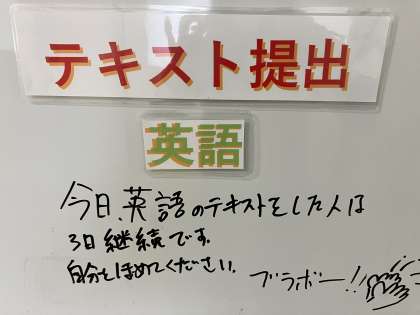 テキスト提出
英語
今日、英語のテキストをした人は
3日継続です。
自分をほめてください。
ブラボー!!